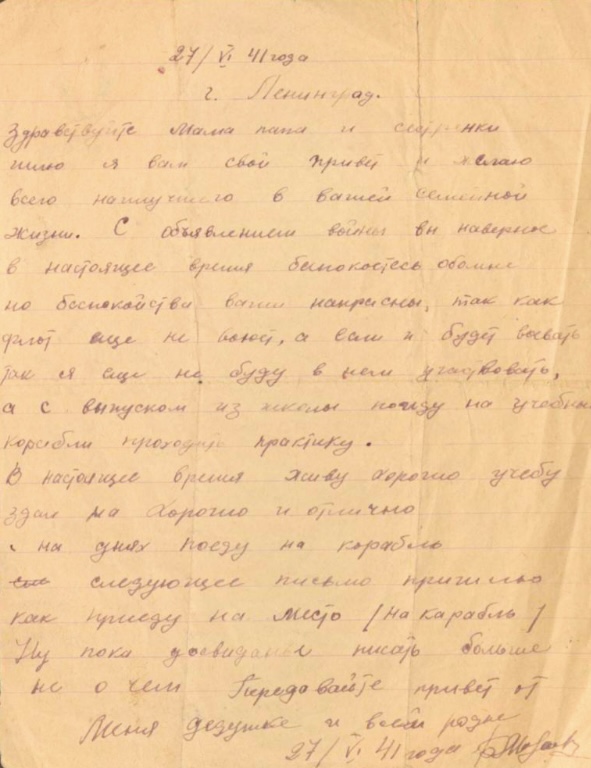 27/VI 41 года
г. Ленинград.
Здравствуйте мама папа и сестренки
шлю я вам свой привет и желаю
всего наилучшего в вашей семейной
жизни. С объявлением войны вы наверное
в настоящее время беспокоетесь обомне
но беспокойства ваши напрасны, так как
флот еще не воюет, а если и будет воевать
так я еще не буду в нем участвовать,
а с выпуском из школы поеду на учебн
корабли проходить практику.
В настоящее время живу хорошо учебу
здал на хорошо и отлично
на днях поеду на корабль
следующее письмо пришлю
как приеду на место /на карабль/
Ну пока досвиданье писать больше
не о чем Передавайте привет от
меня дедушке и всей родне
27/VI 41 года